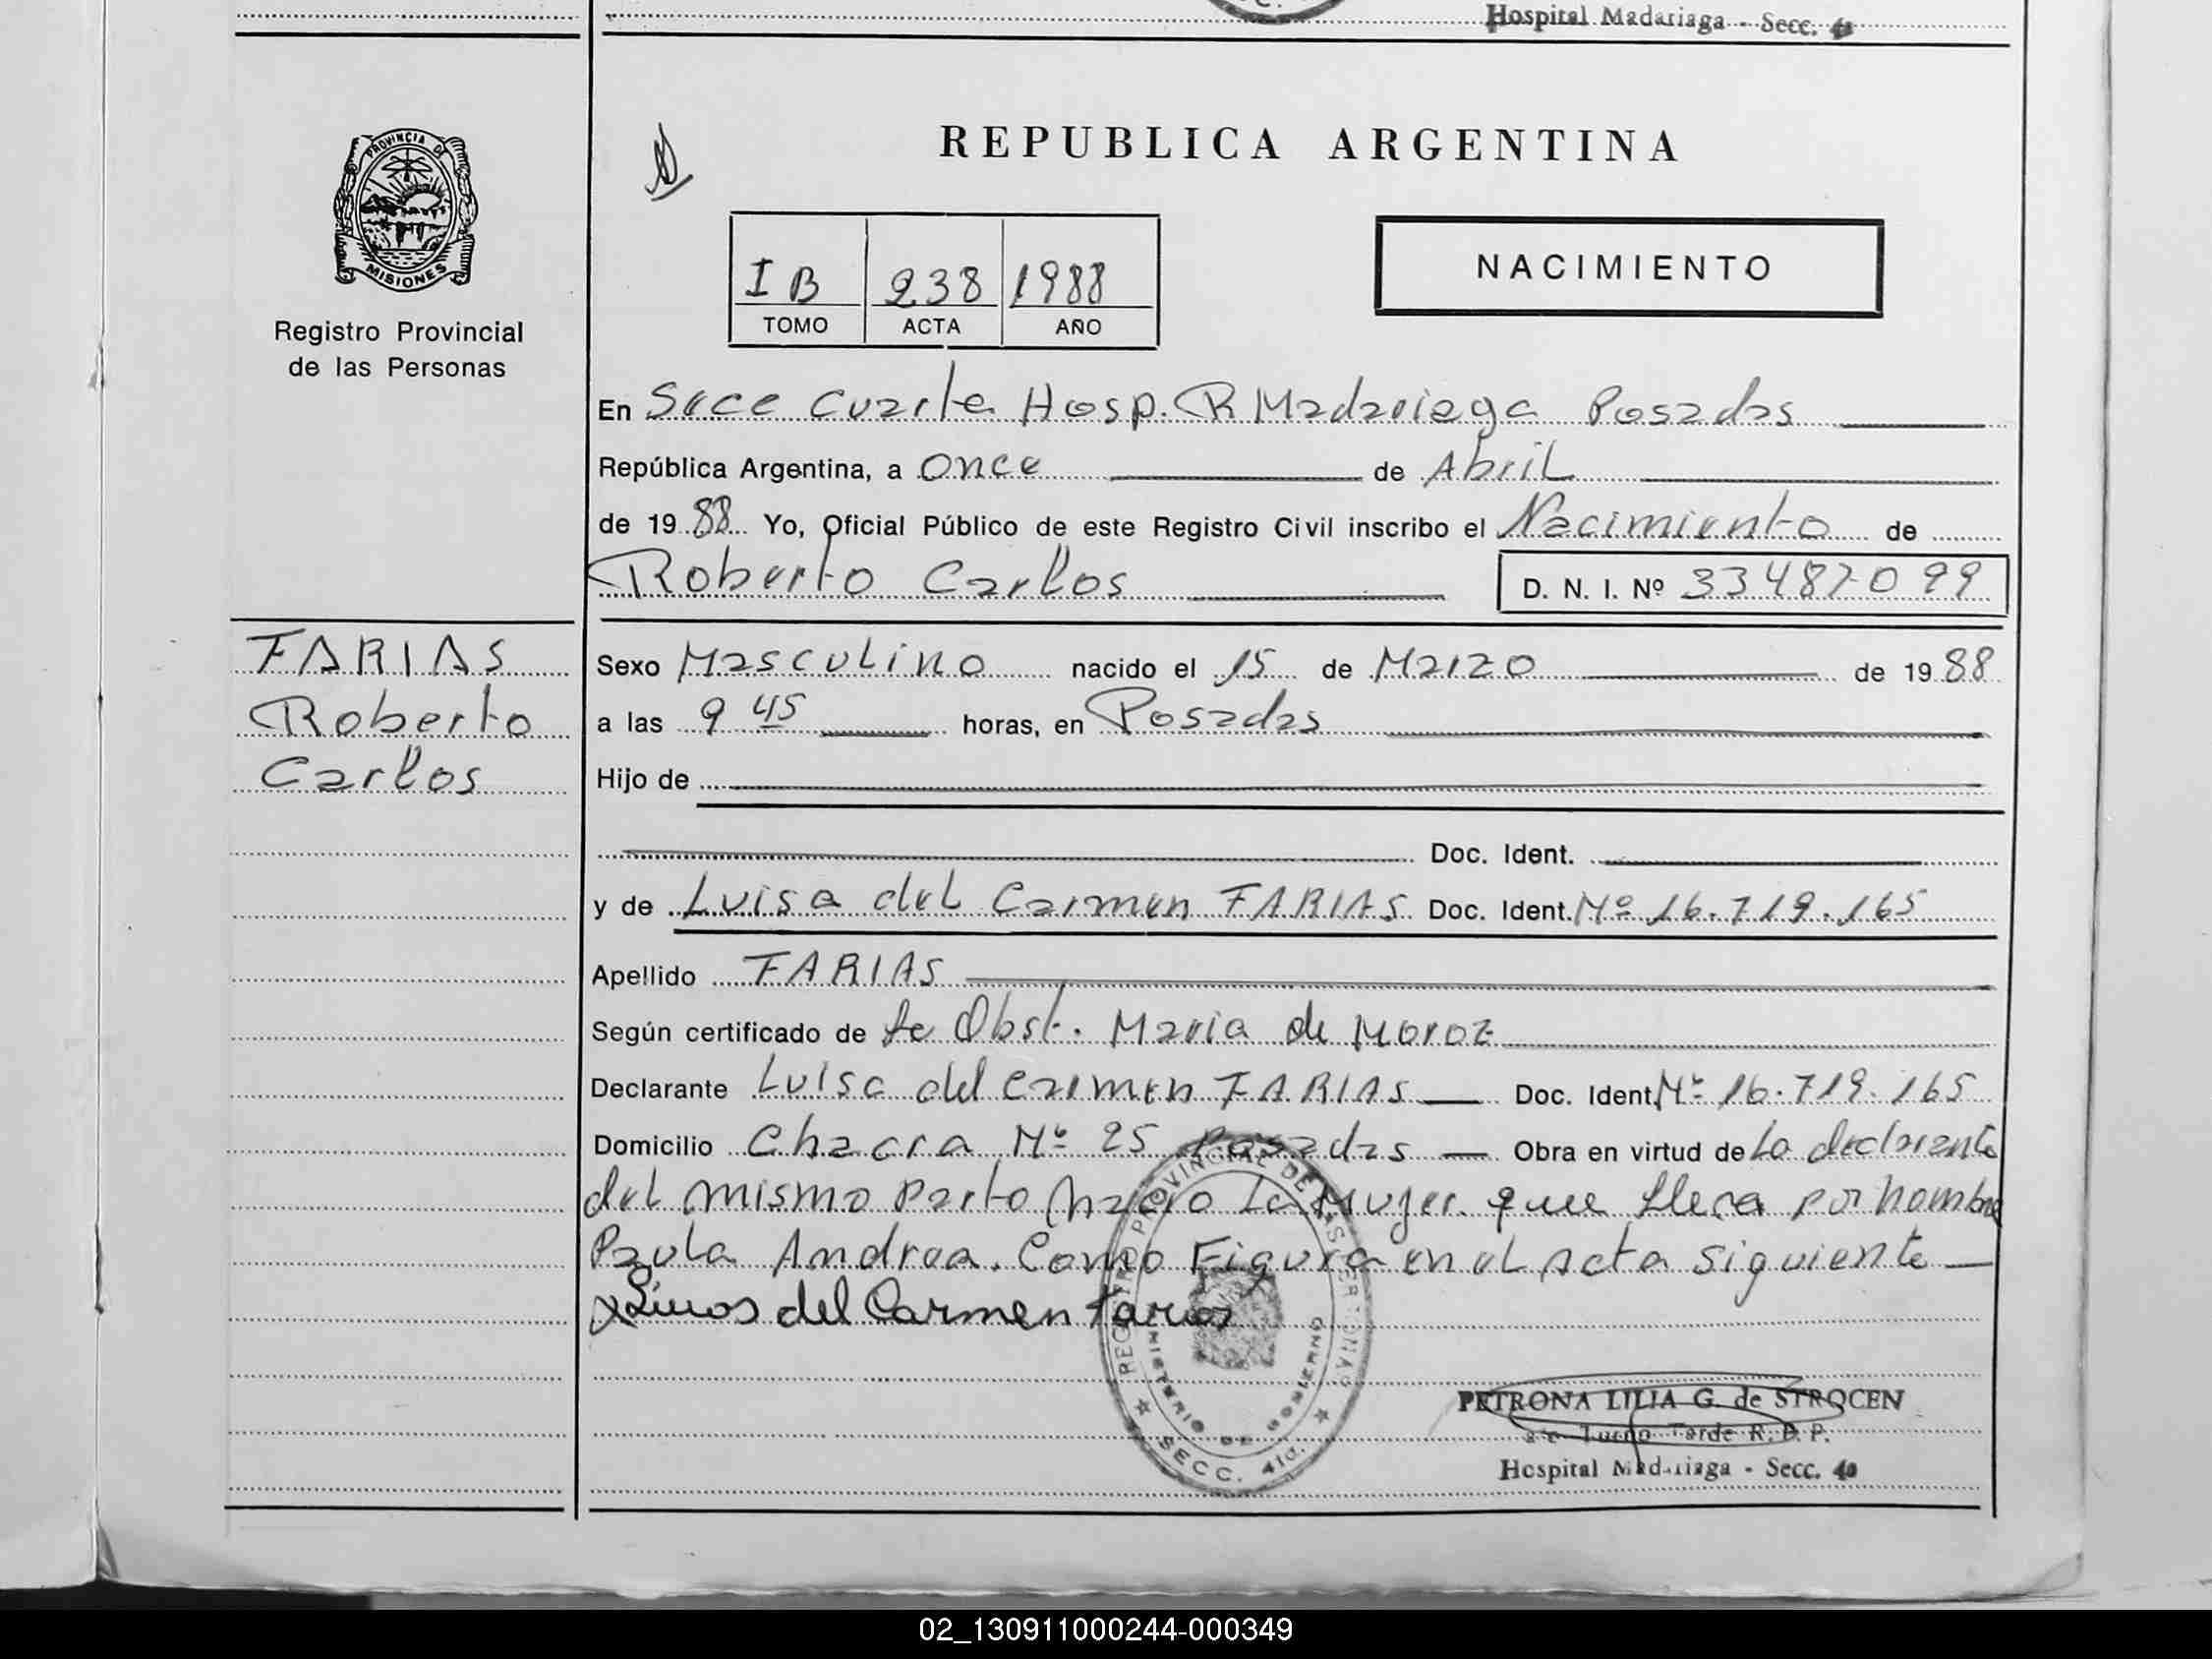 Hospital Madariaga - Secc. 4a
PROVINCIA DE
MISIONES
Registro Provincial
de las Personas
REPUBLICA ARGENTINA
I B 238 1988
TOMO ACTA AÑO
NACIMIENTO
En Secc Cuarta Hosp. R Madariaga Posadas
República Argentina, a Once de Abril
de 1988 Yo, Oficial Público de este Registro Civil inscribo el Nacimiento de
Roberto Carlos D. N. I. Nº 33487099
FARIAS
Roberto
Carlos
Sexo Masculino nacido el 15 de Marzo de 1988
a las 9 45 horas, en Posadas
Hijo de
Doc. Ident.
y de Luisa del Carmen FARIAS Doc. Ident. Nº 16.719.165
Apellido FARIAS
Según certificado de la Obst. Maria de Moroz
Declarante Luisa del Carmen FARIAS Doc. Ident Nº 16.719.165
Domicilio Chacra Nº 25 Posadas Obra en virtud de La declarante
del mismo parto nacio La Mujer que lleva por nombre
Paula Andrea. Como Figura en el Acta siguiente
del Carmen Farias
REGISTRO PROVINCIAL DE LAS PERSONAS
MINISTERIO DE GOBIERNO
SECC. 4ta.
PETRONA LILIA G. de STROCEN
a/c Turno Tarde R. P. P.
Hospital Madariaga - Secc. 4a
02_130911000244-000349